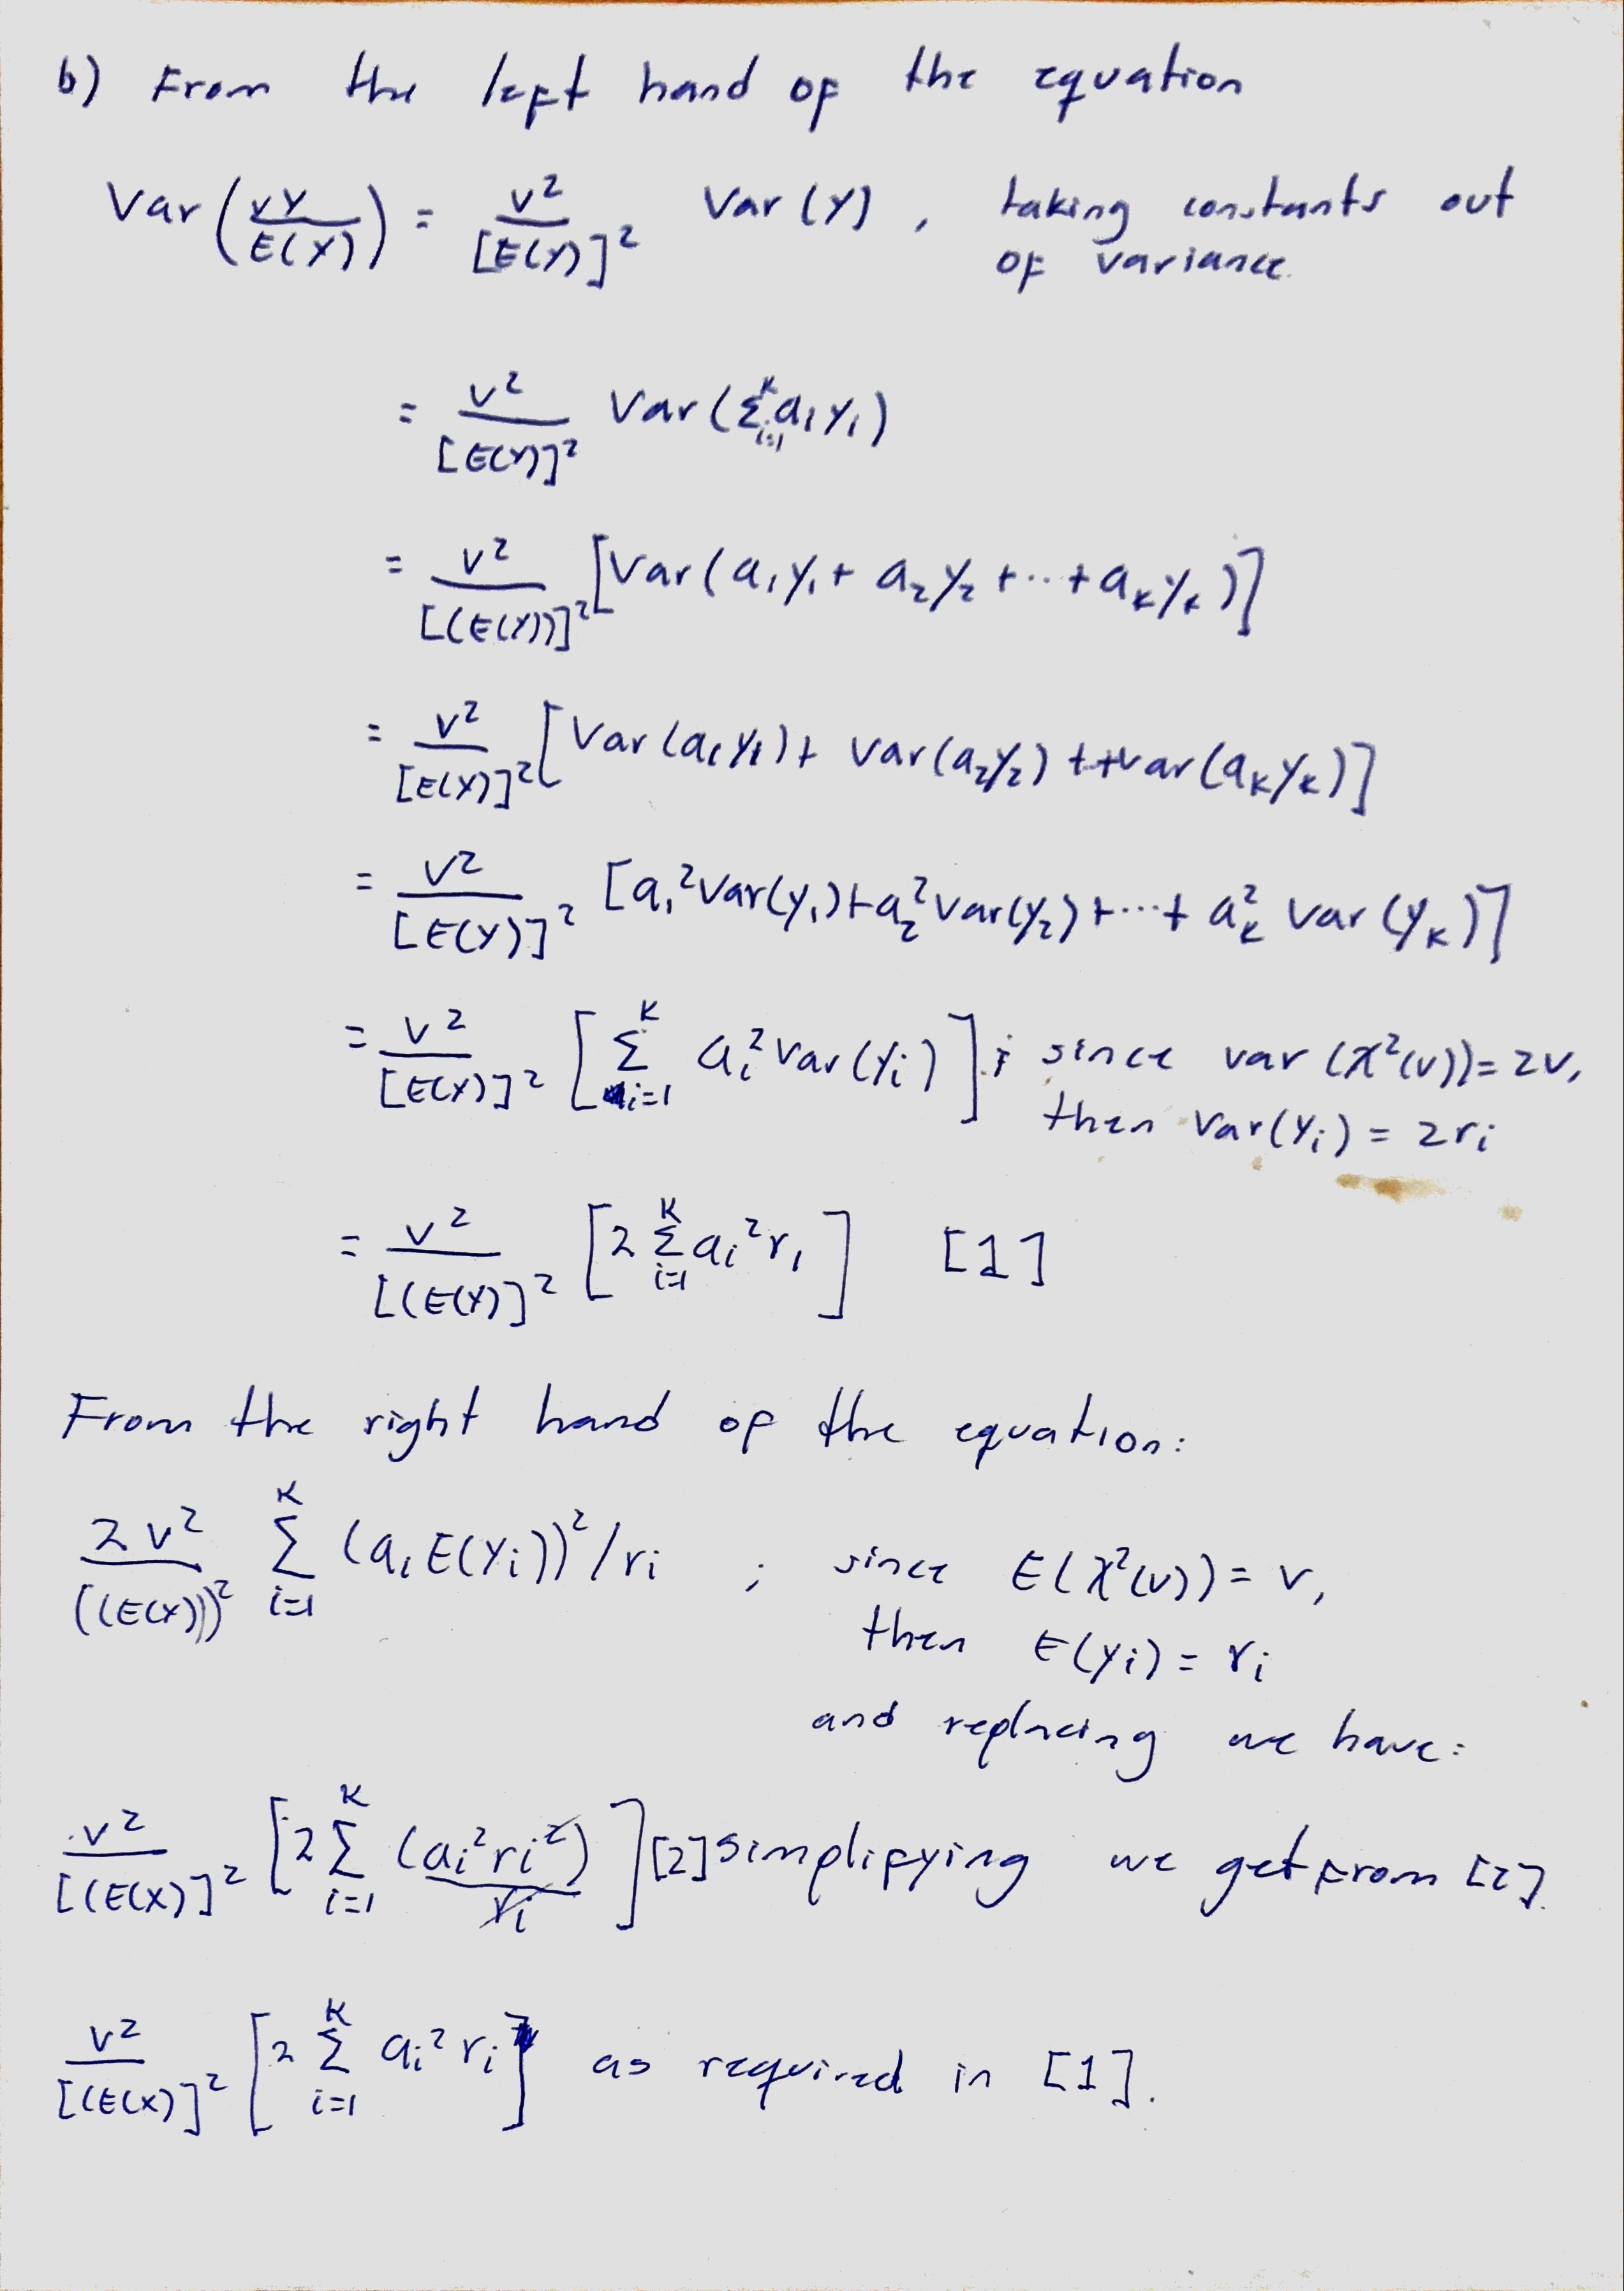 b) From the left hand of the equation
Var(vY/E(Y)) = v²/[E(Y)]² Var(Y), taking constants out
of variance.
= v²/[E(Y)]² Var(Σᵢ₌₁ᴷ aᵢYᵢ)
= v²/[(E(Y))]² [Var(a₁Y₁ + a₂Y₂ + ... + aₖYₖ)]
= v²/[E(Y)]² [Var(a₁Y₁) + Var(a₂Y₂) + ··+ Var(aₖYₖ)]
= v²/[E(Y)]² [a₁²Var(Y₁) + a₂²Var(Y₂) + ... + aₖ² Var(Yₖ)]
= v²/[E(Y)]² [Σᵢ₌₁ᴷ aᵢ² Var(Yᵢ)]; since var(χ²(v)) = 2v,
then Var(Yᵢ) = 2rᵢ
= v²/[(E(Y)]² [2 Σᵢ₌₁ᴷ aᵢ²rᵢ] [1]
From the right hand of the equation:
2v²/((E(Y)))² Σᵢ₌₁ᴷ (aᵢE(Yᵢ))²/rᵢ ; since E(χ²(v)) = v,
then E(Yᵢ) = rᵢ
and replacing we have:
v²/[(E(Y)]² [2 Σᵢ₌₁ᴷ (aᵢ²rᵢ²)/rᵢ] [2] simplifying we get from [2].
v²/[(E(Y)]² [2 Σᵢ₌₁ᴷ aᵢ²rᵢ] as required in [1].